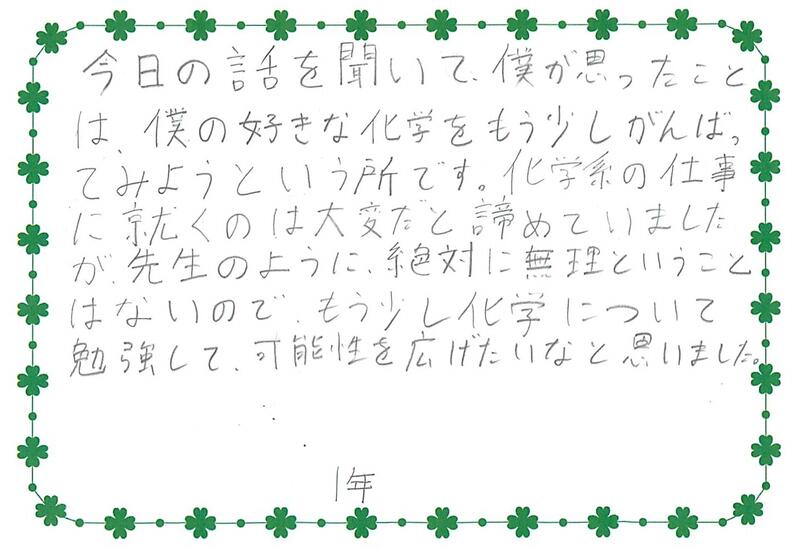 今日の話を聞いて、僕が思ったこと
は、僕の好きな化学をもう少しがんばっ
てみようという所です。化学系の仕事
に就くのは大変だと諦めていました
が、先生のように、絶対に無理ということ
はないので、もう少し化学について
勉強して、可能性を広げたいなと思いました。
1年